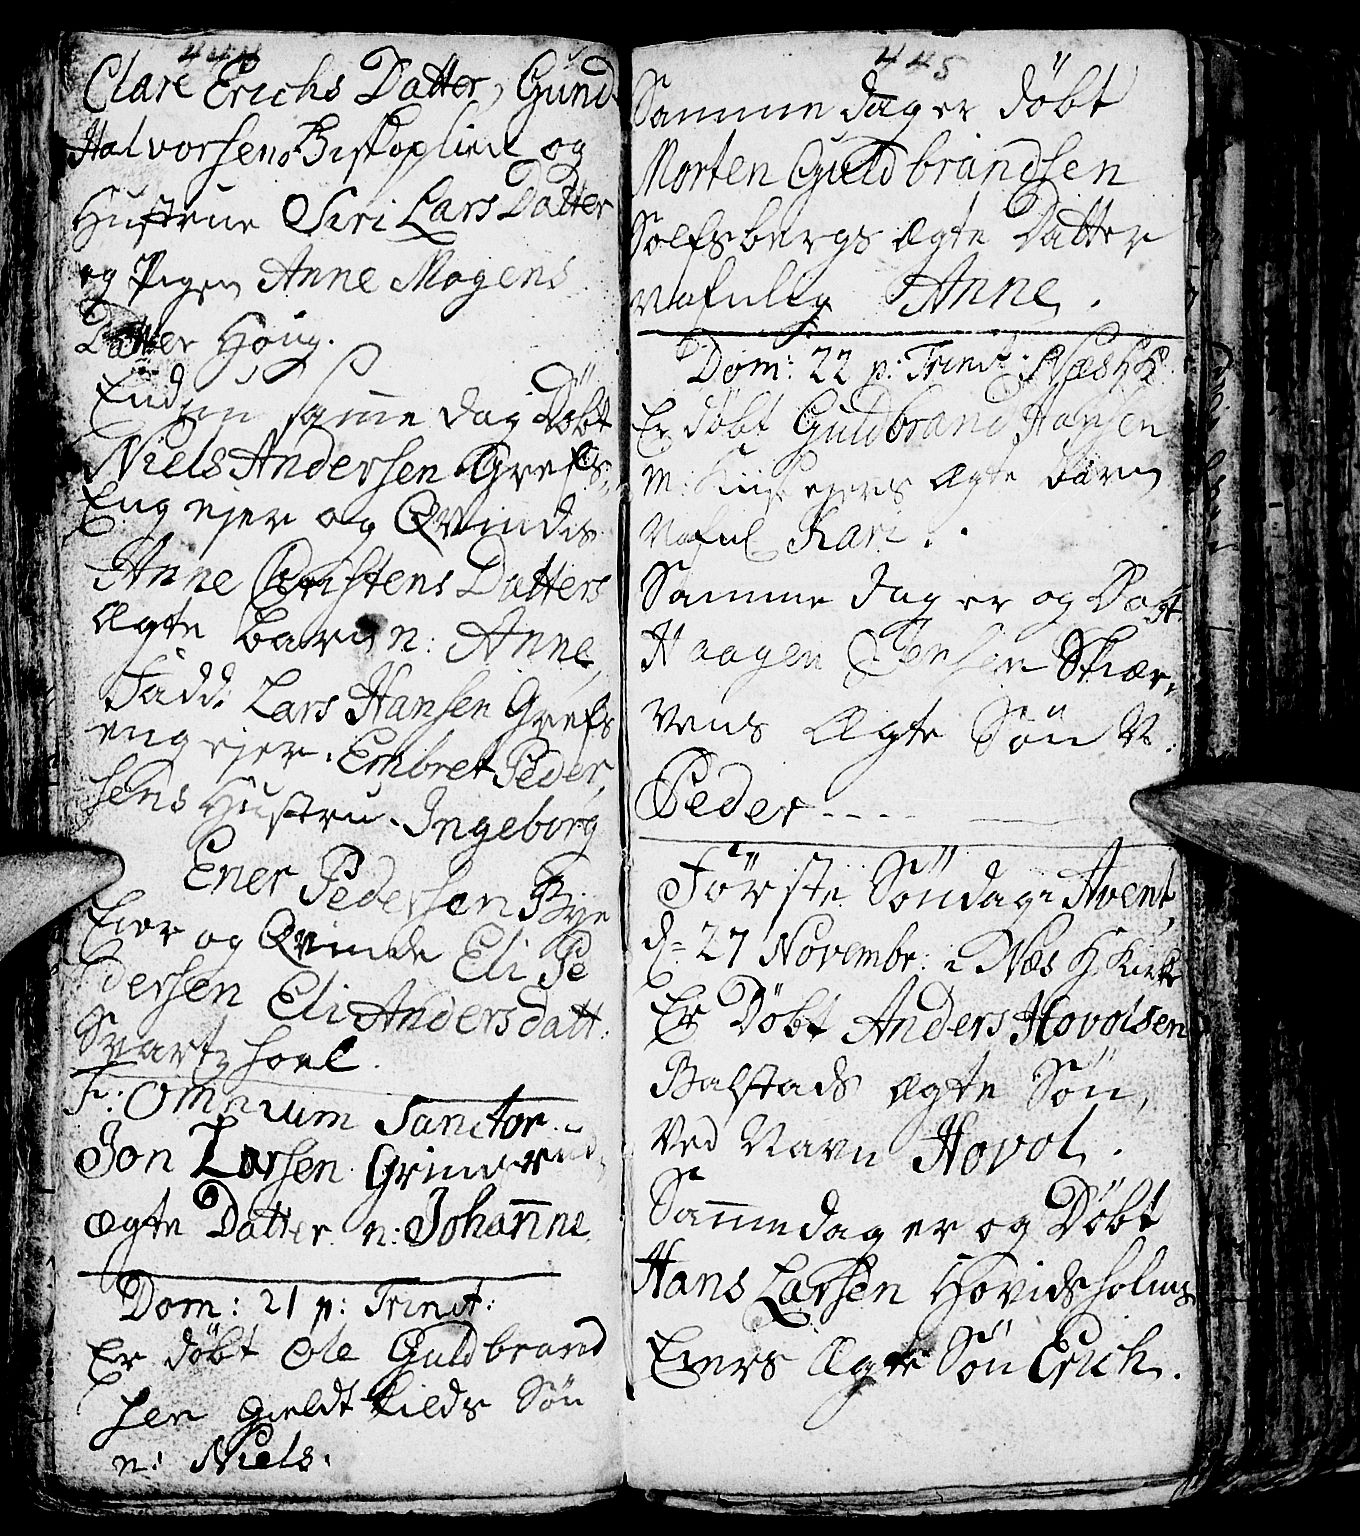 444
Clare Erichs Datter, Gund
Halvorsens Biskoplied og
Hustrue Siri Lars Datter
og Pigen Anne Mogens
Datter Høug.
End en samme dag Døbt
Niels Andersen Grefs-
Eng ejer og Qvindis
Anne Christens Datters
Ægte barn n: Anne
Fadd: Lars Hansen Grefs
eng ejer. Embret Peder,
sens Hustru. Ingeborg
Ener Pedersen Bye
Eier og Qvinde Eli Pe
dersen Eli Andersdatt:
Svartshoel.
F: Omnium Sanctor.
Jon Larsen Grinder
ægte Datter n: Johanne
Dom: 21 p: Trinit:
Er døbt Ole Guldbrand
sen Søn
n: Niels.
445
Samme dag er døbt
Morten Guldbrandsen
Solfsbergs Ægte Datter
nafnlig Anne.
Dom: 22 p: Trinit:
Er døbt Guldbrand Hansen
Ægte barn
Nafnl Kari.
Samme dag er og Døbt
Haagen Jensen Skiær,
vens Ægte Søn N.
Peder
Første Søndag i Avent,
d. 27 Novembr: i Næs H. Kirke
Er Døbt Anders Hovolsen
Balstads Ægte Søn,
Ved Navn Hovol.
Samme dag er og Døbt
Hans Larsen Hovidsholms
Eiers Ægte Søn Erich.